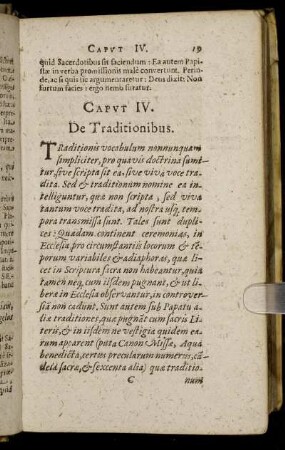 CAPVT IV. 19
quid Sacerdotibus sit faciendum: Ea autem Papi-
stæ in verba promissionis malè convertunt. Perin-
de, ac si quis sic argumentaretur: Deus dicit: Non
furtum facies: ergo nemo furatur.
CAPVT IV.
De Traditionibus.
TRaditionis vocabulum nonnunquam
simpliciter, pro quavis doctrina sumi-
tur, sive scripta sit ea, sive vivâ voce tra-
dita. Sed & traditionum nomine ea in-
telliguntur, quæ non scripta, sed vivâ
tantum voce tradita, ad nostra usq; tem-
pora transmissa sunt. Tales sunt dupli-
ces: Quædam continent ceremonias, in
Ecclesia pro circumstantiis locorum & tē-
porum variabiles & adiaphoras, quæ li-
cet in Scriptura sacra non habeantur, quia
tamen neq; cum iisdem pugnant, & ut li-
beræ in Ecclesia observantur, in controver-
siam non cadunt. Sunt autem sub Papatu a-
liæ traditiones, quæ pugnāt cum sacris Li-
teris, & in iisdem ne vestigia quidem ea-
rum apparent (puta Canon Missæ, Aqua
benedicta, certus precularum numerus, cā-
dela sacra, & sexcenta alia) quæ traditio-
C num